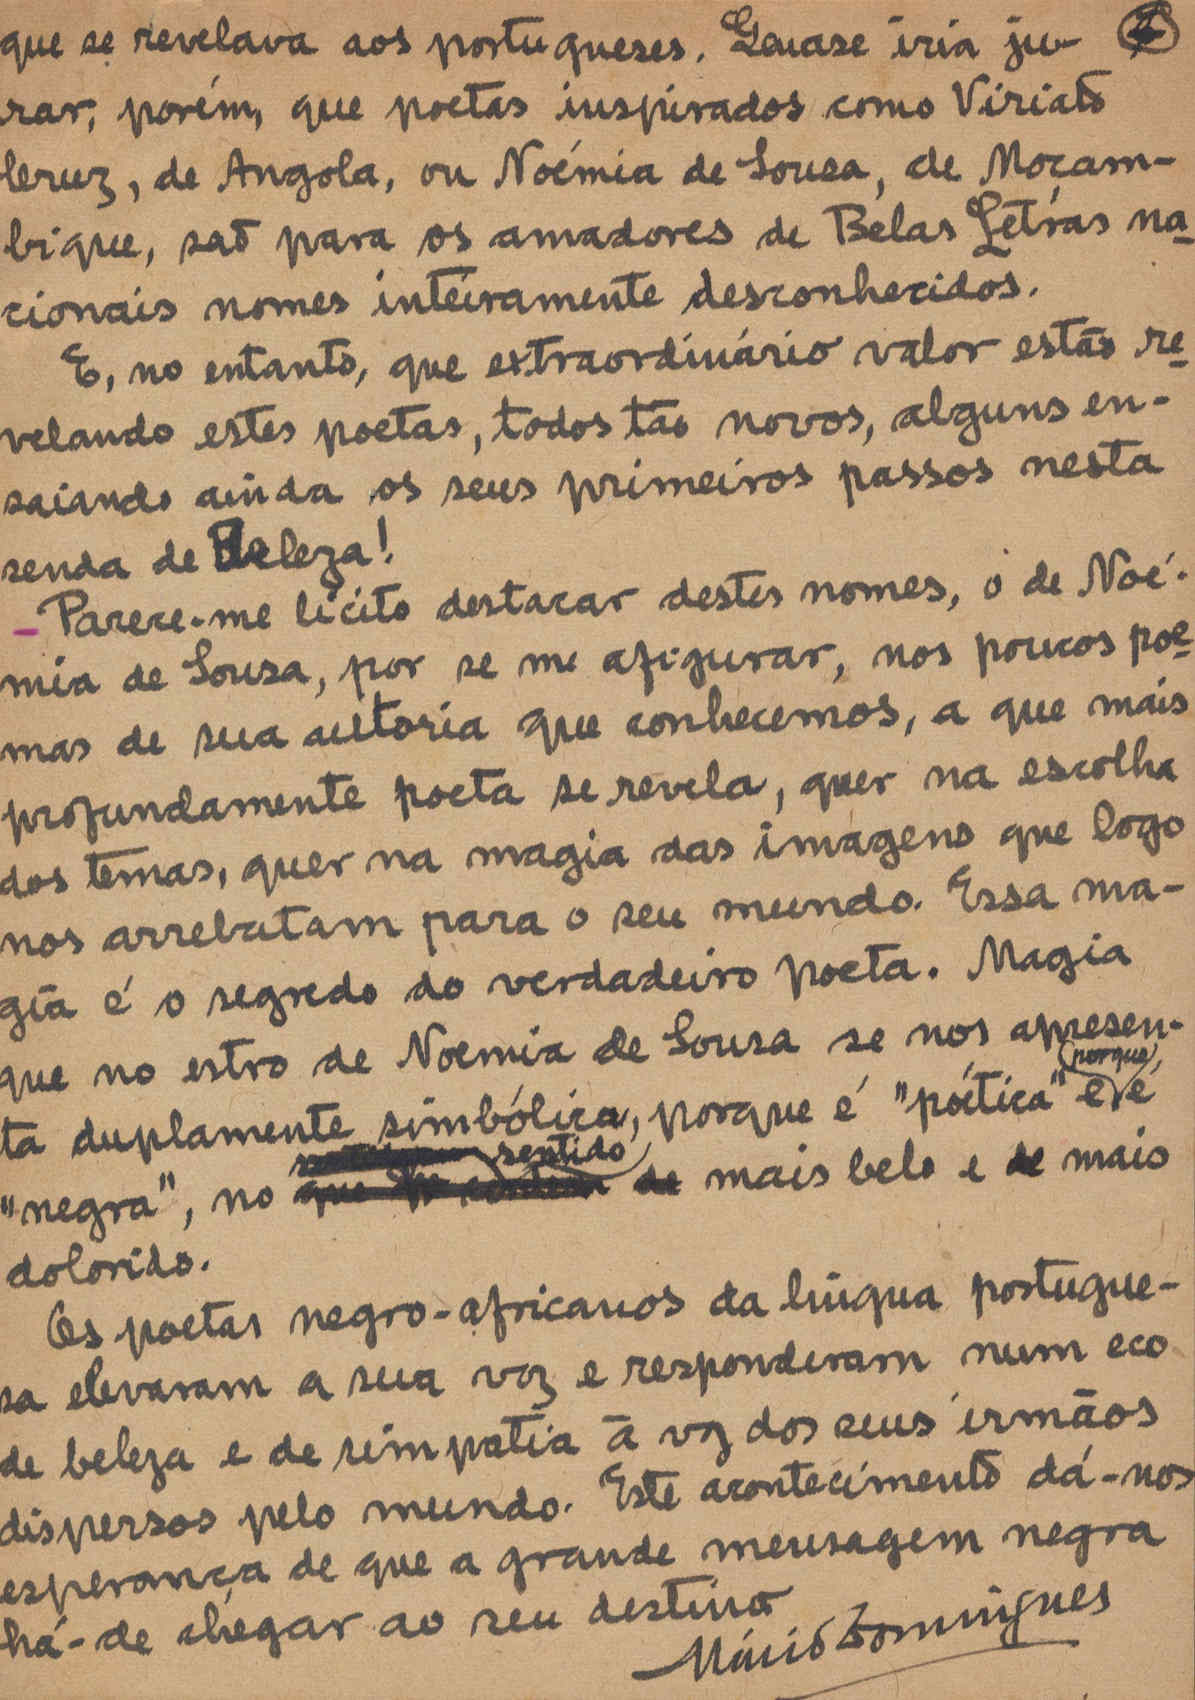 que se revelava aos portugueses. Quase iria ju-
rar, porém, que poetas inspirados como Viriato
Cruz, de Angola, ou Noémia de Sousa, de Moçam-
bique, são para os amadores de Belas Letras na-
cionais nomes inteiramente desconhecidos.
E, no entanto, que extraordinário valor estão re-
velando estes poetas, todos tão novos, alguns en-
saiando ainda os seus primeiros passos nesta
senda de Beleza!
– Parece-me lícito destacar destes nomes, o de Noé-
mia de Sousa, por se me afigurar, nos poucos poe-
mas de sua autoria que conhecemos, a que mais
profundamente poeta se revela, quer na escolha
dos temas, quer na magia das imagens que logo
nos arrebatam para o seu mundo. Essa ma-
gia é o segredo do verdadeiro poeta. Magia
que no estro de Noémia de Sousa se nos apresen-
ta duplamente simbólica, porque é "poética" e porque é
"negra", no sentido mais belo e mais
dolorido.
Os poetas negro-africanos da língua portugue-
sa elevaram a sua voz e responderam num eco
de beleza e de simpatia à voz dos seus irmãos
dispersos pelo mundo. Este acontecimento dá-nos
esperança de que a grande mensagem negra
há-de chegar ao seu destino
Mário Domingues